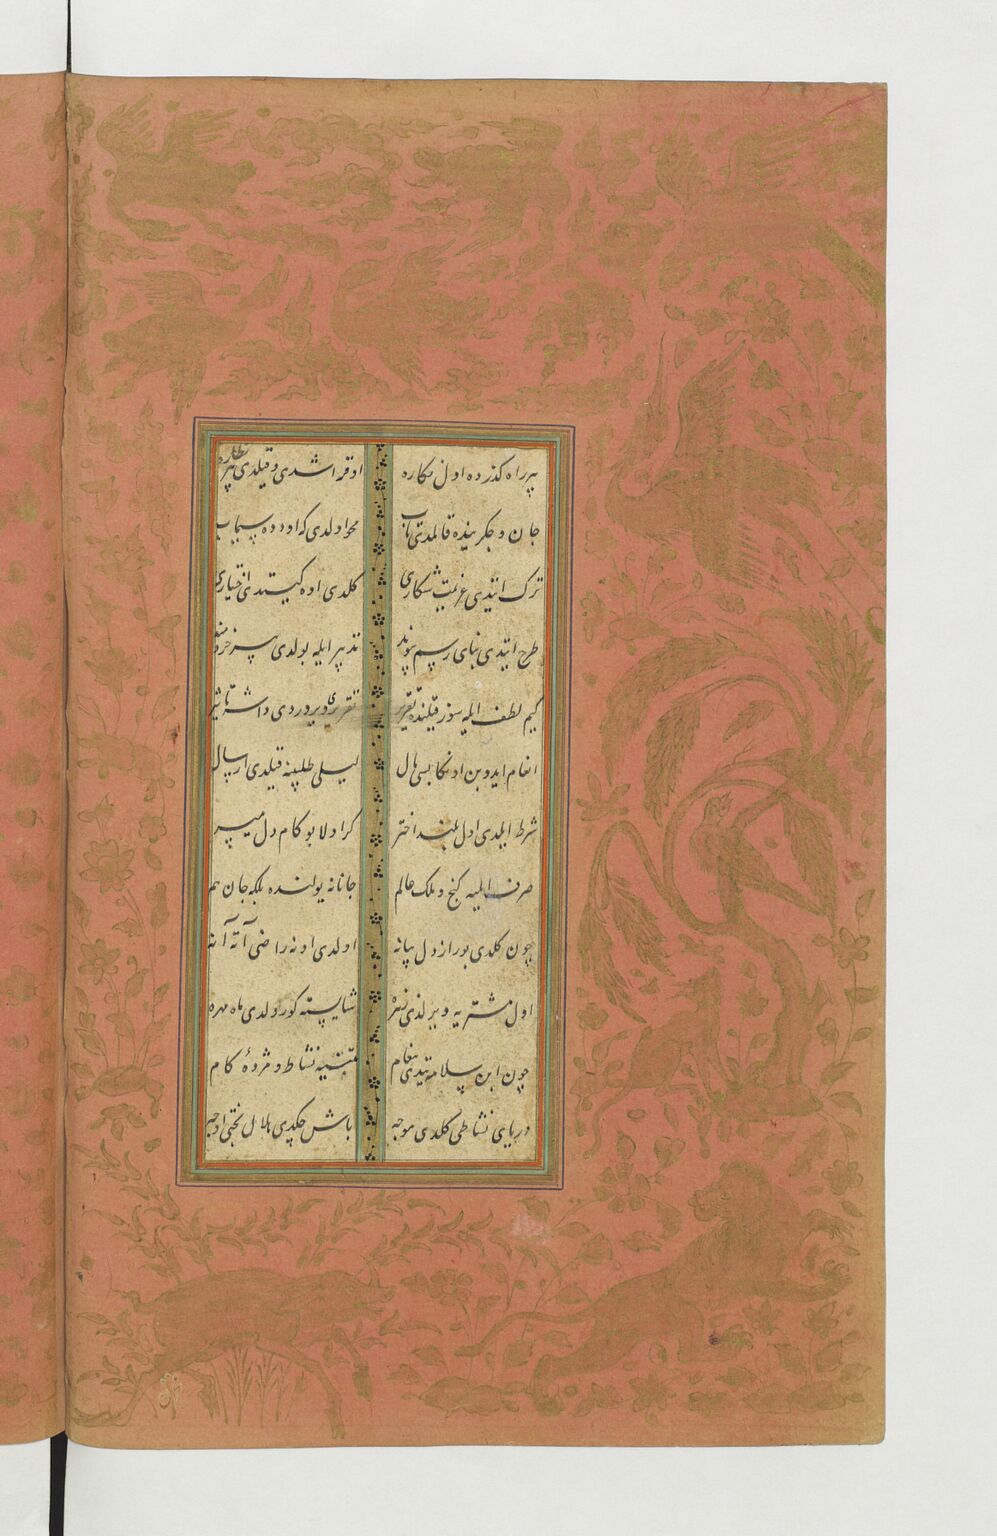 بر راه كذرده اول نكاره اوقراشدی و قیلدی بر نظاره
جان و جكرینده قالمدی تاب محو اولدی كه اودده سیماب
ترك ایتدی عزیمت شكاری كلدی اوه كیتدی اختیاری
طرح ایتدی بنای رسم پیوند تدبیر ایله بولدی بر خردمند
كیم لطف ایله سوز قیلنده تقریر تقریری ویردی داشه تاثیر
انعام ایدوبن اونكا بسی مال لیلی طلبینه قیلدی ارسال
شرط ایلدی اول بلند اختر كر اولا بو كام دل میسر
صرف ایلیه كنج و ملك عالم جانانه یولنده بلكه جان هم
چون كلدی بو راز دل بیانه اولدی اونه راضی آته آنه
اول مشتریه ویرلدی زهره شایسته كورولدی ماه مهره
چون ابن سلامه یتدی پیغام نشاط و مژدۀ كام
دریای نشاطی كلدی موجه باش چكدی هلال بختی اوجه